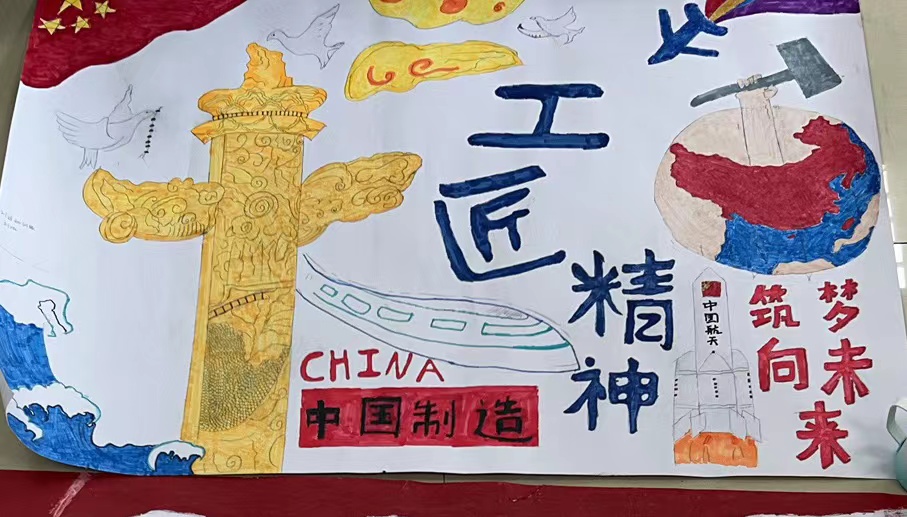 工匠精神
CHINA
中国制造
中国航天
筑梦
向未来